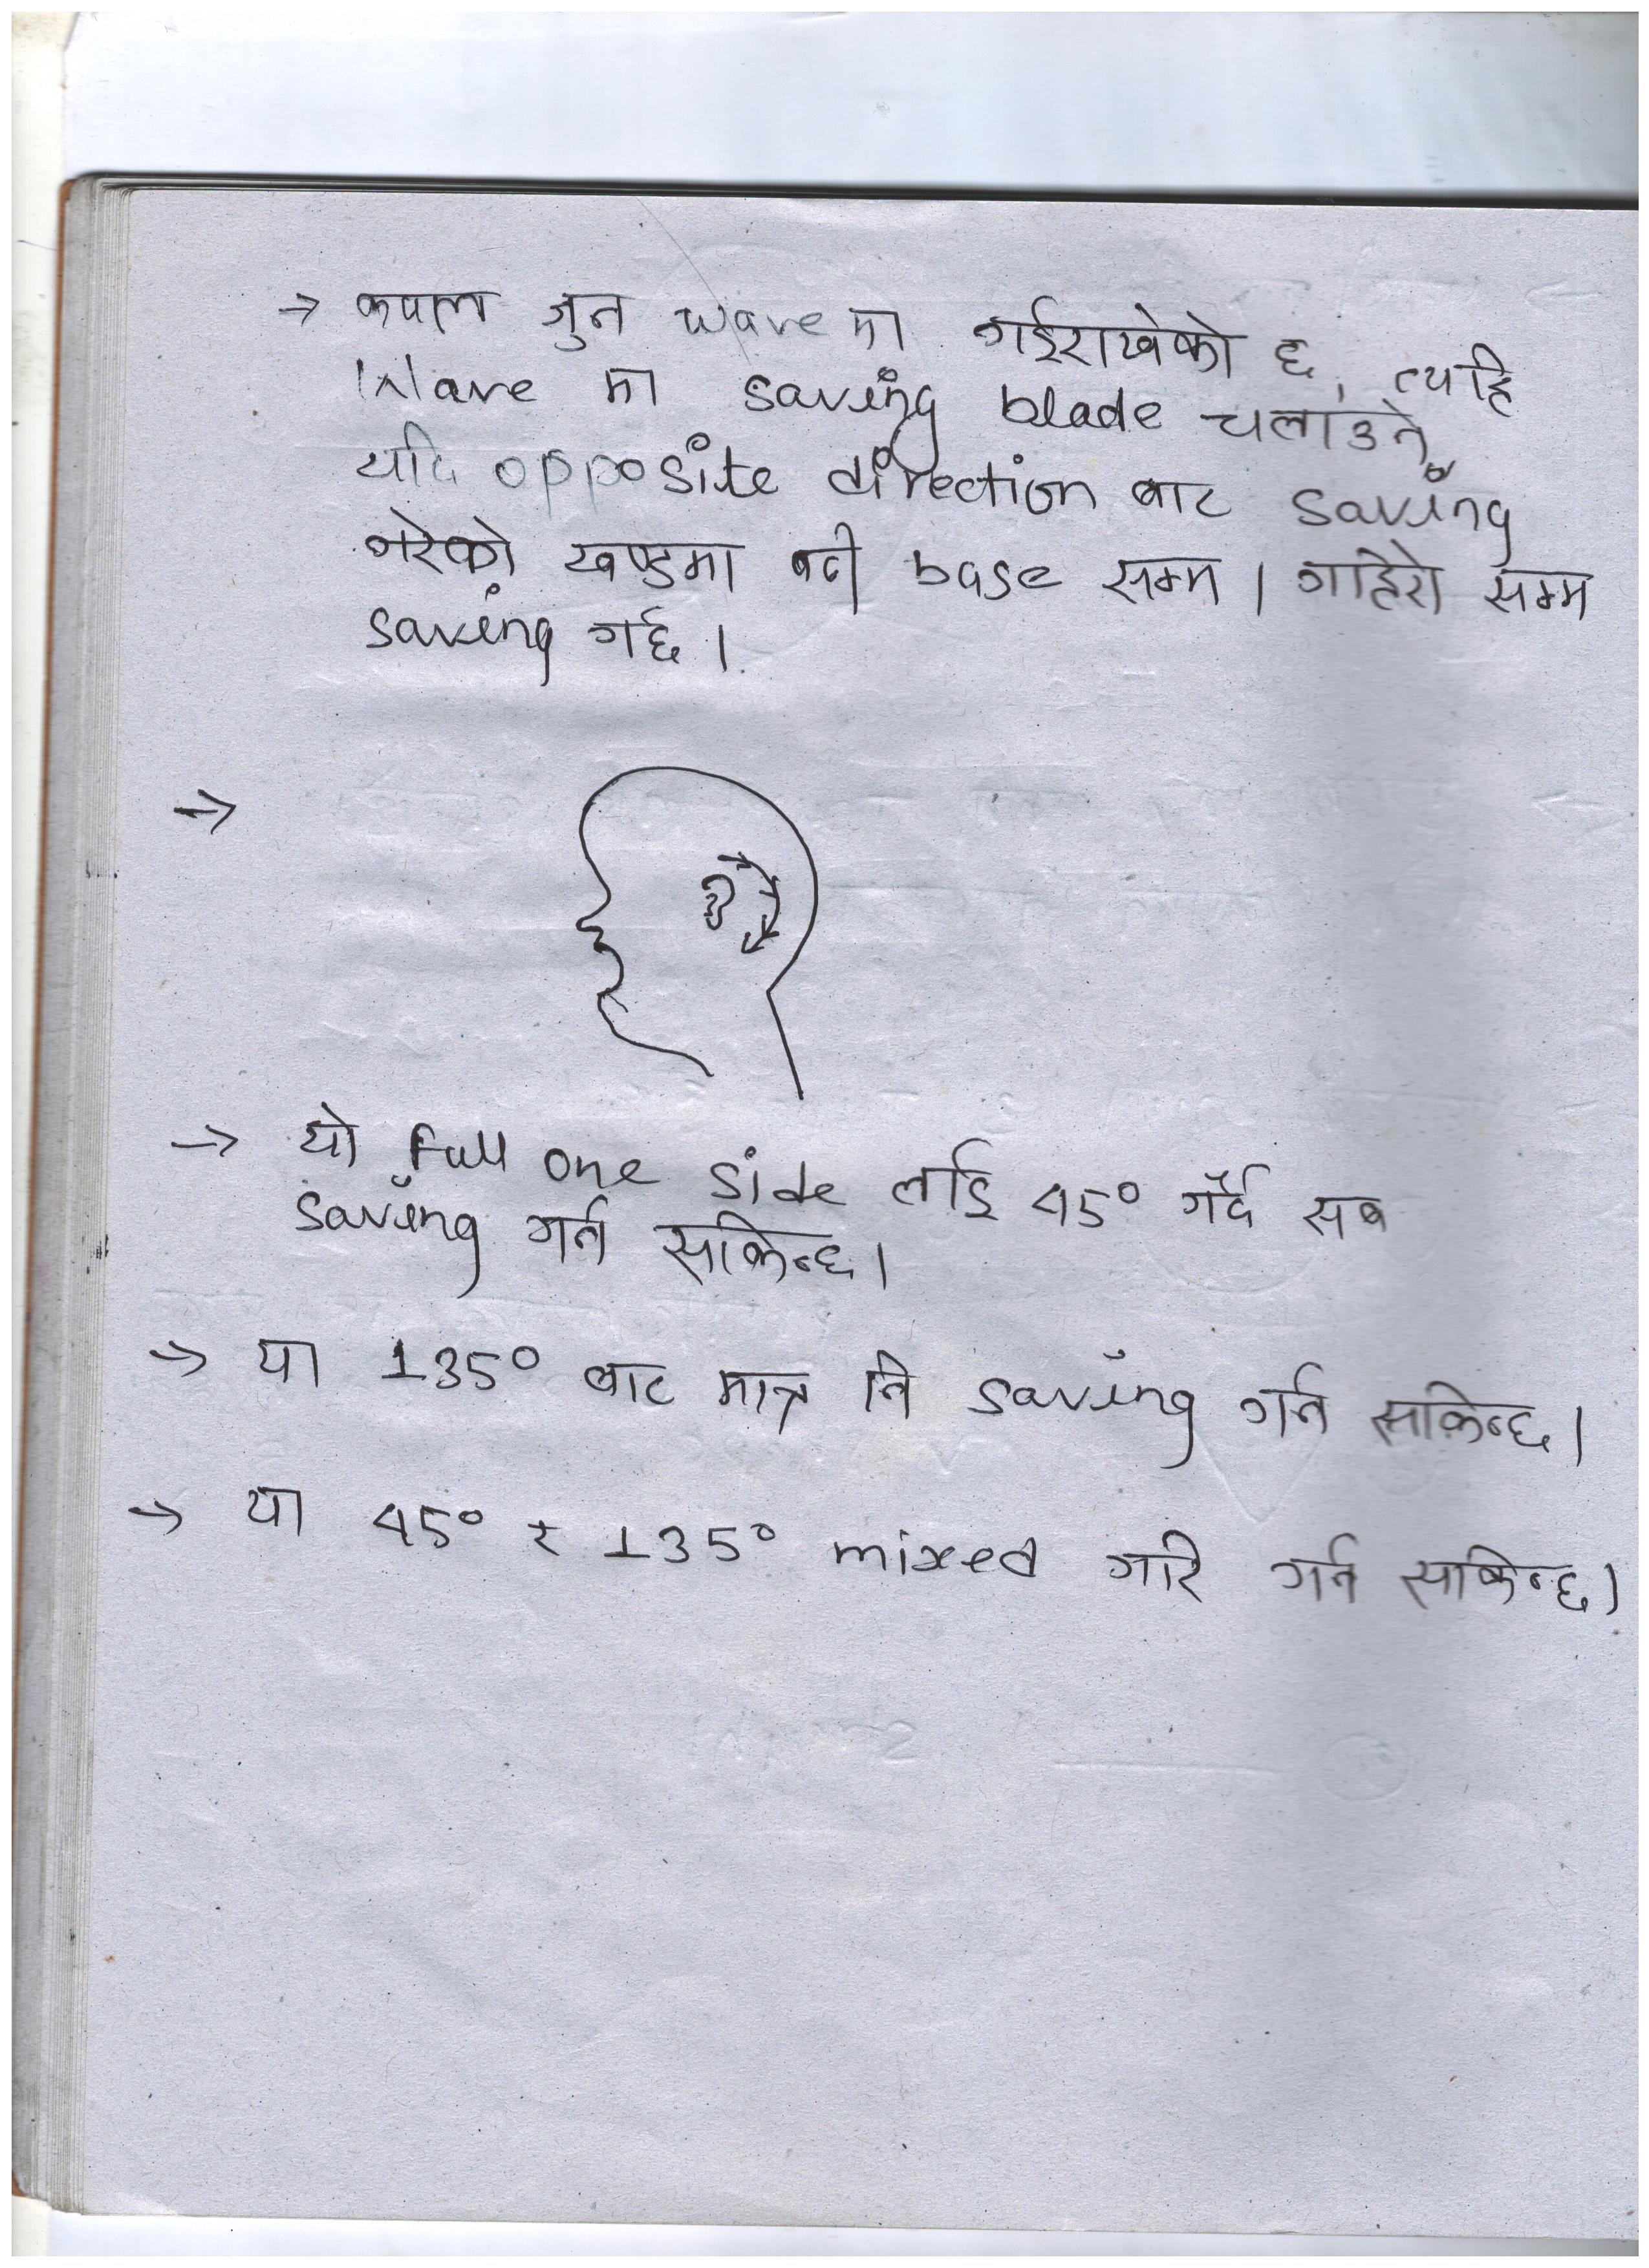 → कपाल जुन wave मा गईराखेको छ, त्यहि
Wave मा saving blade चलाउने,
यदि opposite direction बाट saving
गरेको खण्डमा बढी base सम्म । गहिरो सम्म
saving गर्छ ।
→
→ यो Full one side लाई 45° गर्दै सब
saving गर्न सकिन्छ ।
→ या 135° बाट मात्र नि saving गर्न सकिन्छ ।
→ या 45° र 135° mixed गरि गर्न सकिन्छ ।